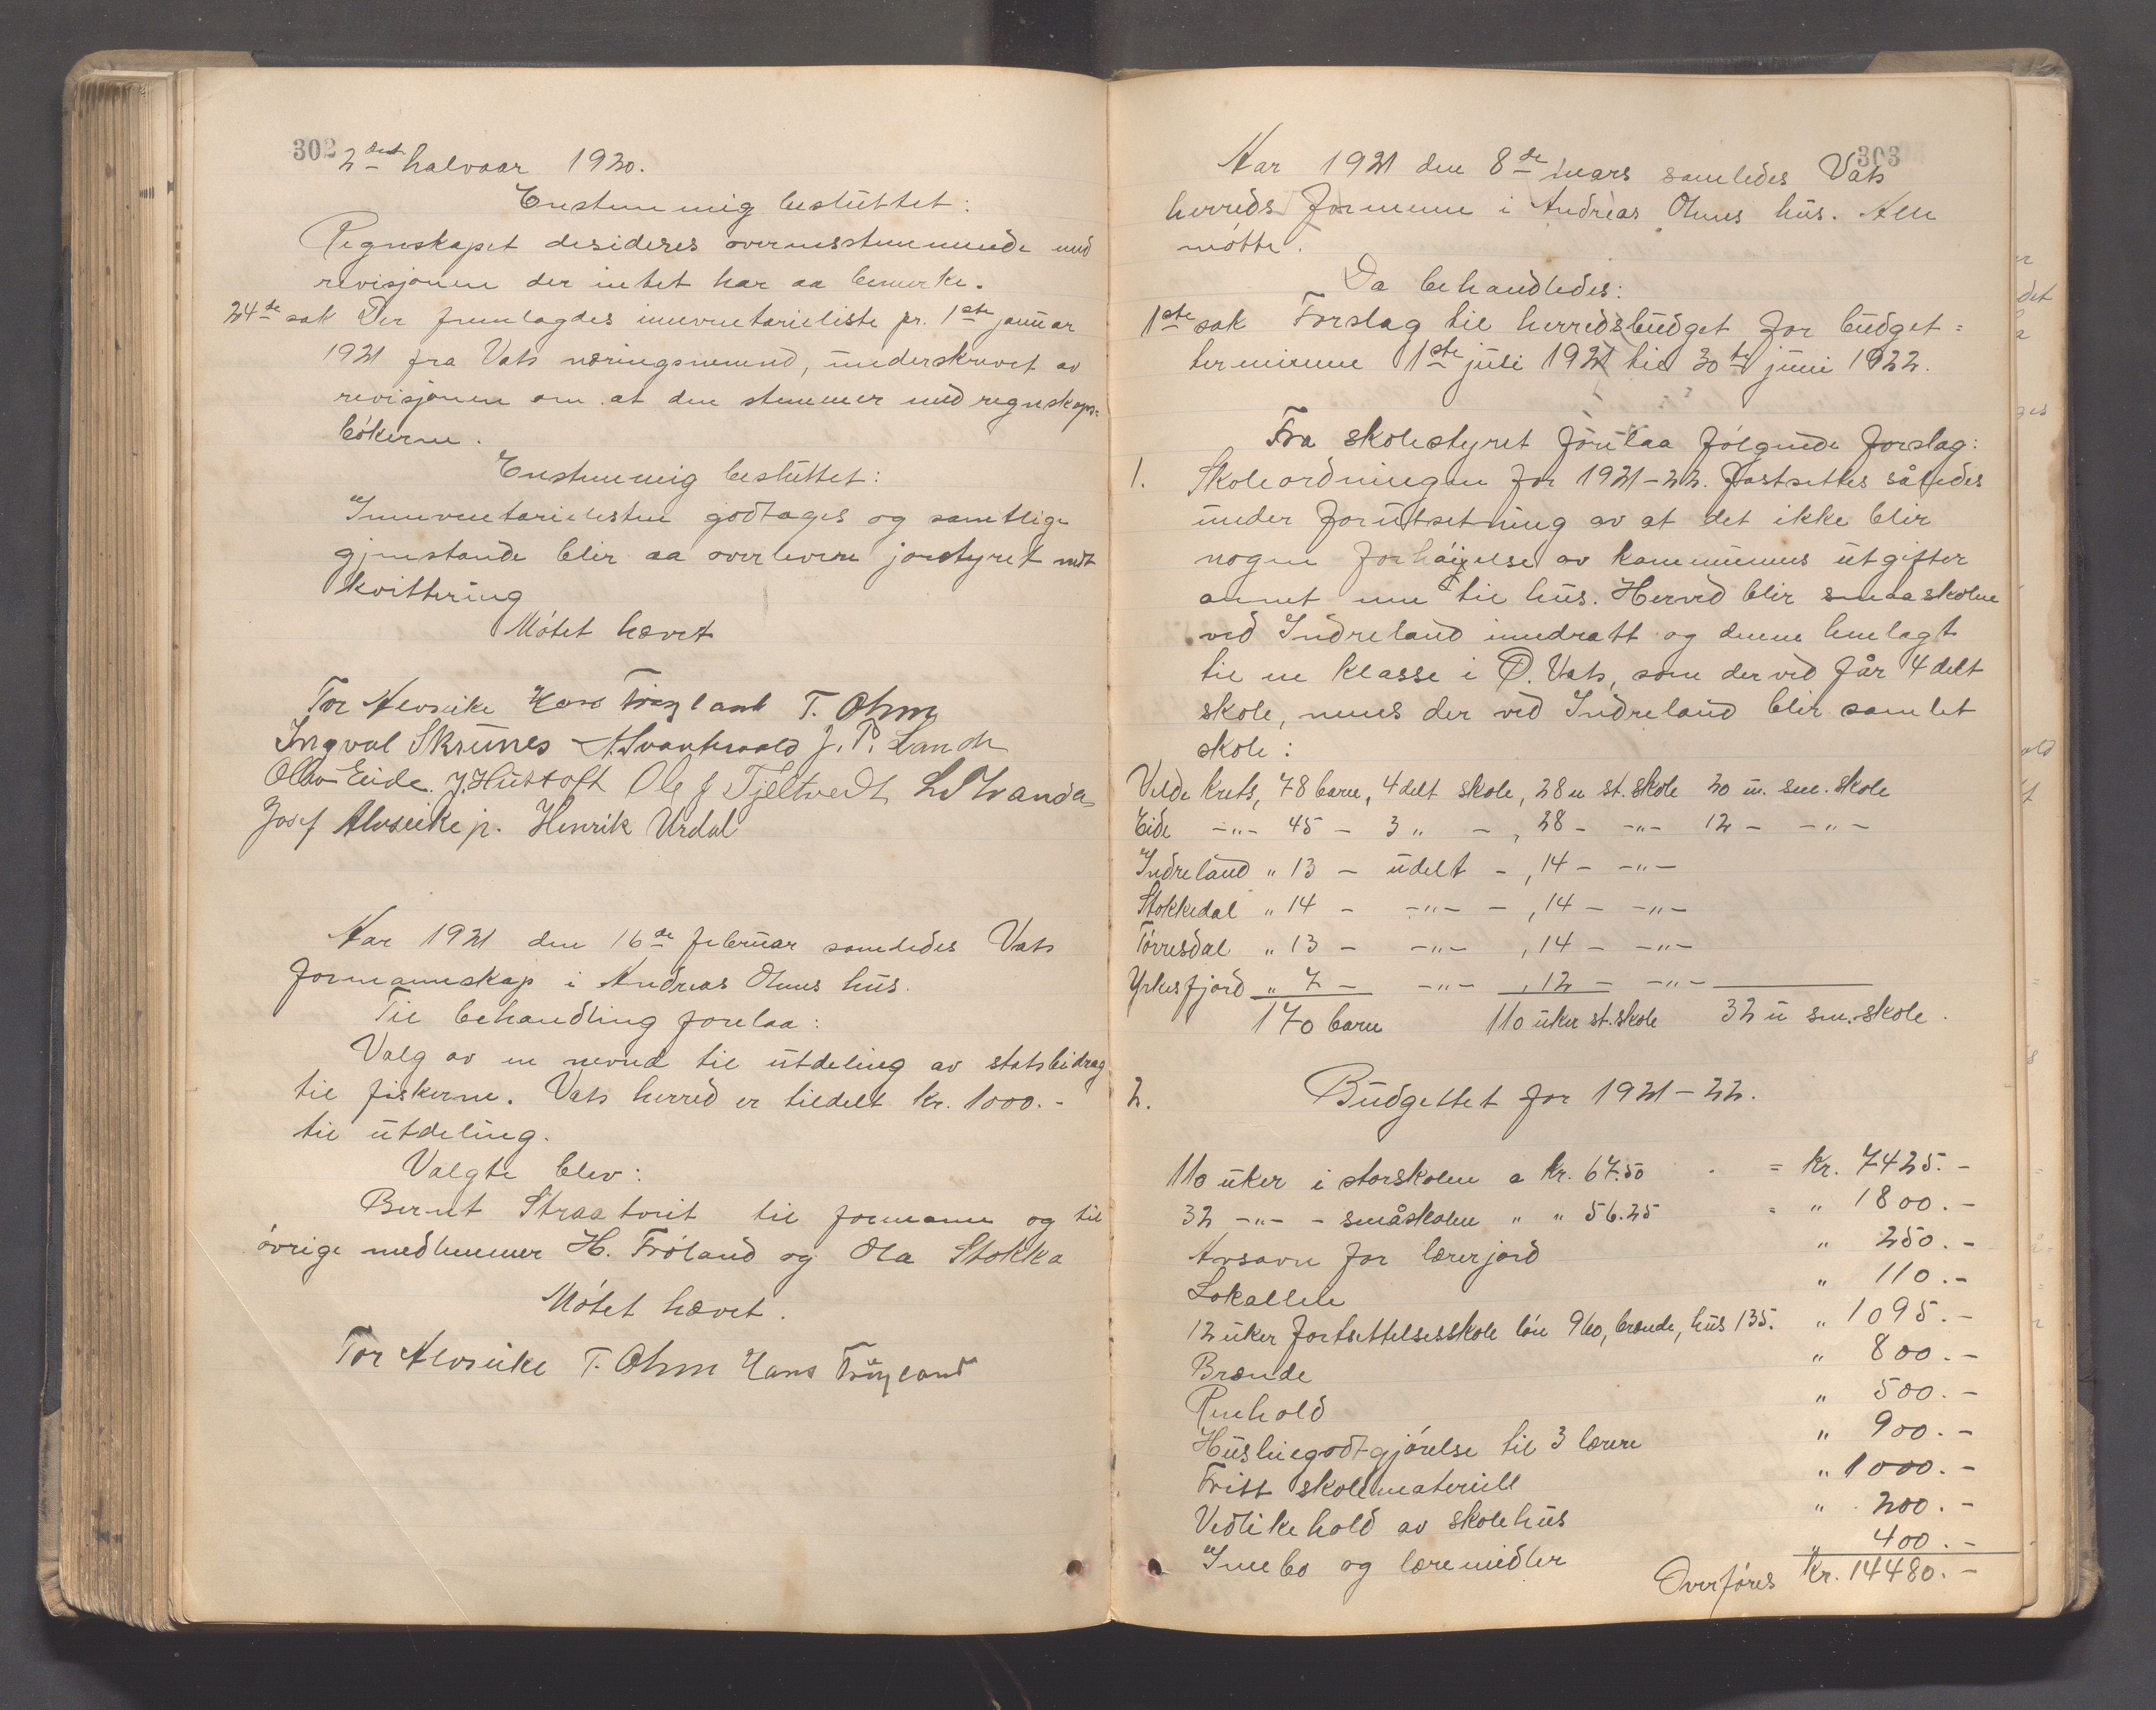 302
2det halvaar 1920.
Enstemmig besluttet:
Regnskapet desideres overensstemmende med
revisjonen der intet har aa bemerke.
24de sak Der fremlagdes inventarieliste pr. 1ste januar
1921 fra Vats næringsnemnd, underskrevet av
revisjonen om at den stemmer med regnskaps=
bökerne.
Enstemmig besluttet:
Inventarielisten godtages og samtlige
gjenstande blir aa overlevere jorstyret mot
kvittering
Mötet hævet
Tor Alvseike Hans Fröyland T. Ohm
Ingval Skeunes A. Svantevold J. P. Sandr
Olav Eide. J. Hustoft Ole J Tjeltvedt L. Stranda
Josef Alvseike jr. Henrik Urdal
Aar 1921 den 16de februar samledes Vats
formannskap i Andreas Ohms hus.
Til behandling forelaa:
Valg av en nevnd til utdeling av statsbidrag
til fiskerne. Vats herred er tildelt kr. 1000.-
til utdeling.
Valgte blev:
Bernt Straatveit til formann og til
övrige medlemmer H. Fröland og Ola Stokka
Mötet hævet.
Tor Alvseike T. Ohm Hans Fröyland
303
Aar 1921 den 8de mars samledes Vats
herreds formenn i Andreas Ohms hus. Alle
mötte.
Da behandledes:
1ste sak Forslag til herredsbudget for budget=
terminene 1ste juli 1921 til 30te juni 1922.
Fra skolestyret forelaa fölgende forslag:
1. Skoleordningen for 1921-22. fastsettes således
under forutsetning av at det ikke blir
nogen forhöielse av kommunens utgifter
annet enn til hus. Herved blir smaaskolen
ved Indreland inndratt og denne henlagt
til en klasse i Ö. Vats, som derved får 4 delt
skole, mens der ved Indreland blir samlet
skole:
Velde krets, 78 barn, 4 delt skole, 28 u st. skole 20 u. sm. skole
Eide -"- 45 - 3 " - , 28 - -"- 12 - -"-
Indreland " 13 - udelt - , 14 - -"-
Stokkedal " 14 - -"- - , 14 - -"-
Törresdal " 13 - -"- , 14 - -"-
Yrkesfjord " 7 - -"- , 12 - -"-
170 barn 110 uker st. skole 32 u sm. skole.
2. Budgettet for 1921-22.
110 uker i storskolen a kr. 67.50 = kr. 7425.-
32 -"- - småskolen " " 56.25 = " 1800.-
Avsavn for lærerjord " 250.-
Lokalleie " 110.-
12 uker fortsettelsesskole lön 960, brende, hus 135. " 1095.-
Brænde " 800.-
Renhold " 500.-
Husleiegodtgjörelse til 3 lærere " 900.-
Fritt skolemateriell " 1000.-
Vedlikehold av skolehus " 200.-
Innbo og læremidler " 400.-
Overföres kr. 14480.-